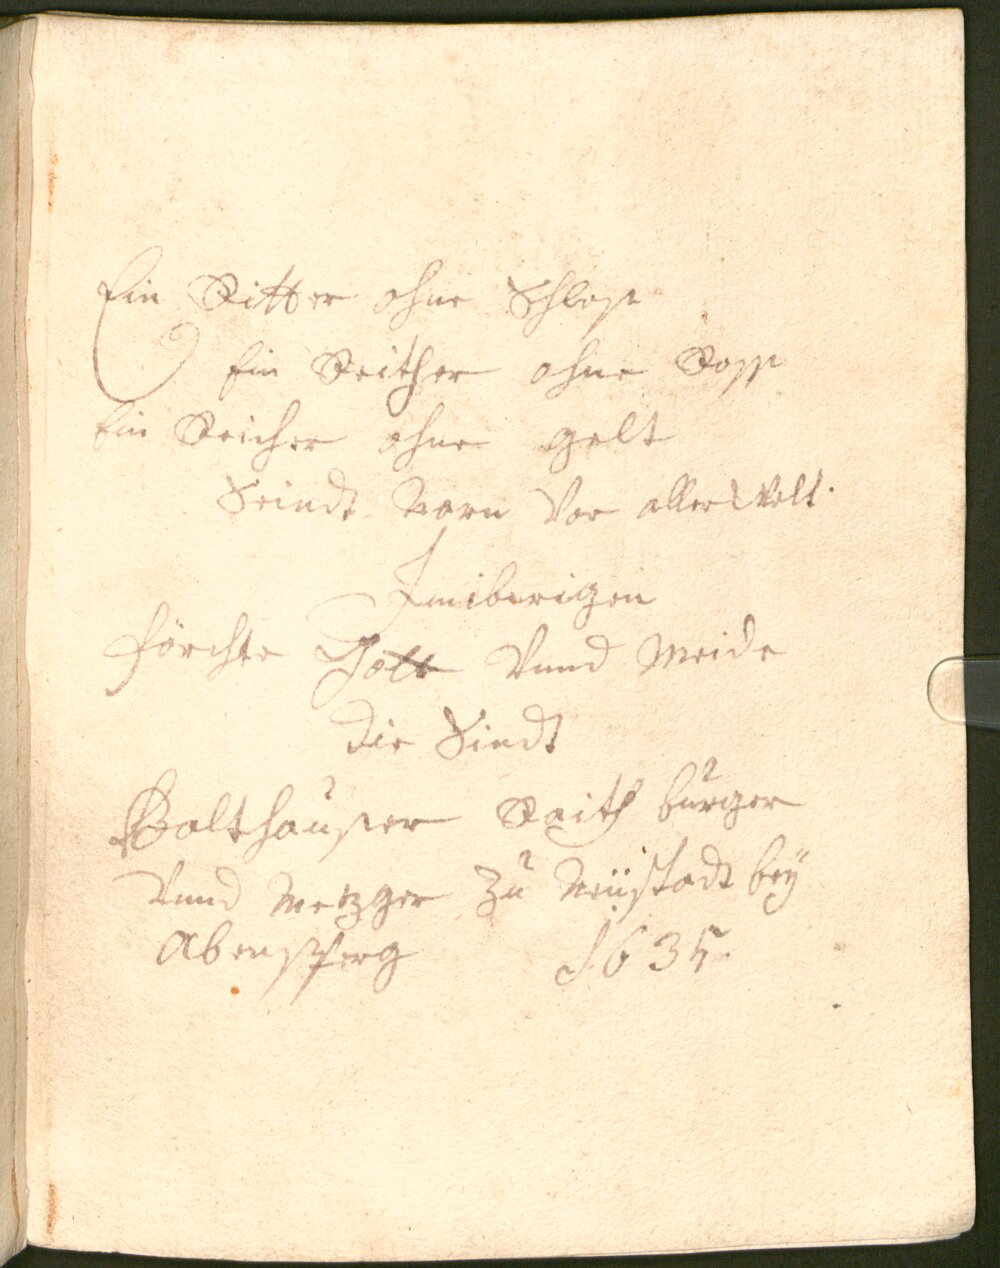 Ein Ritter ohne Schloß
Ein Reither ohne Ross
Ein Reicher ohne gelt
Seindt Narn Vor aller Welt.
Im iberigen
förchte Gott Vnnd Meide
die Sindt
Balthaußer Raith burger
Vnnd Metzger Zu Neüstadt bey
Abensperg 1635.